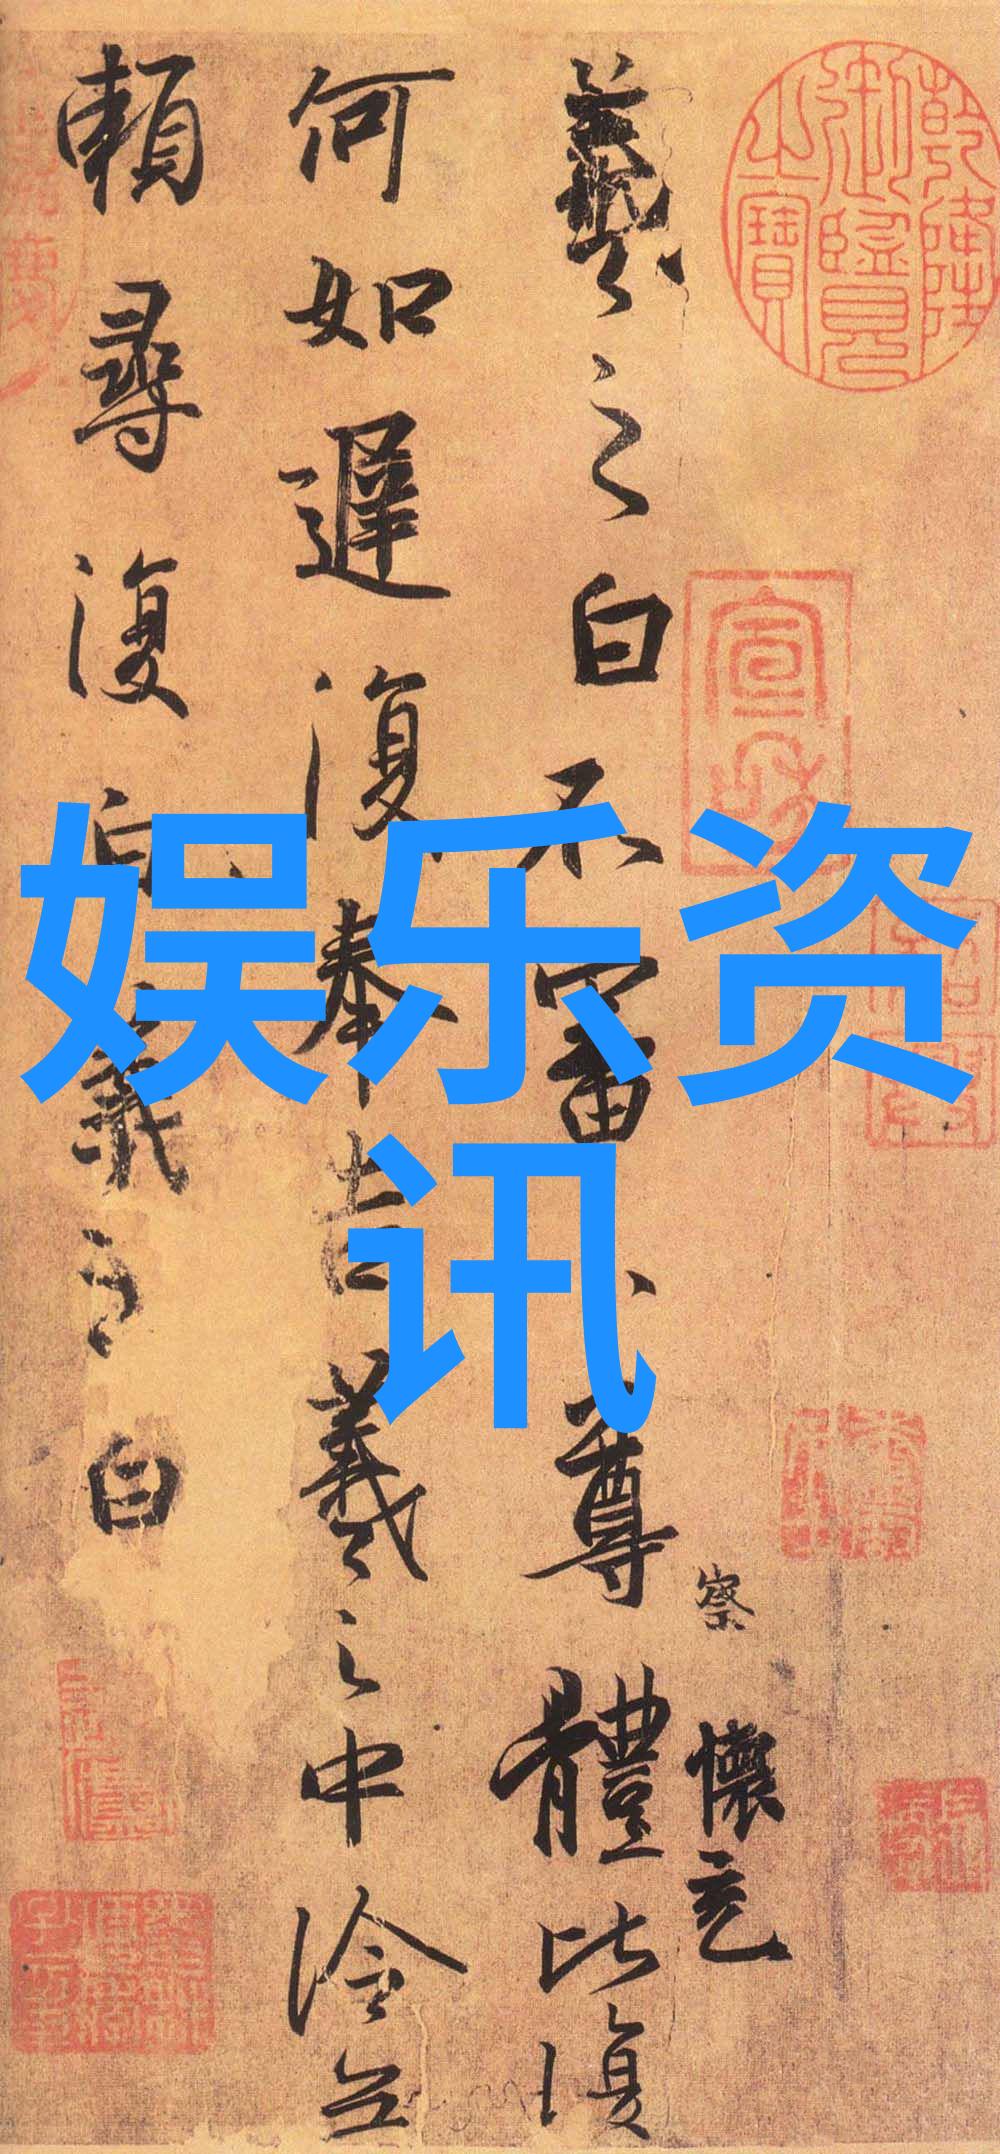 娱乐资
讯
乾隆
御覽
之寶
察
懷充
羲之白不審尊體比復
何如遲復奉告羲之中冷無
賴尋復白羲之白